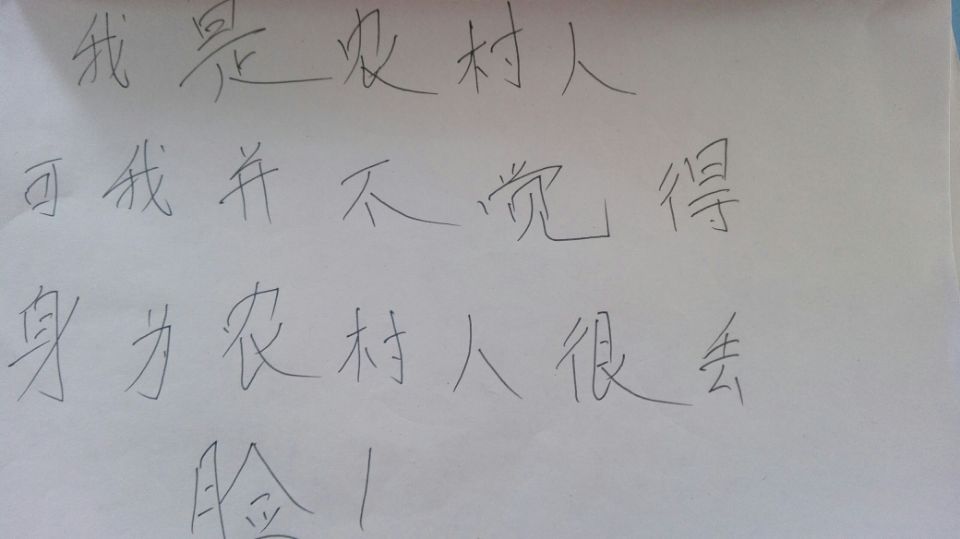 我是农村人
可我并不觉得
身为农村人很丢
脸！